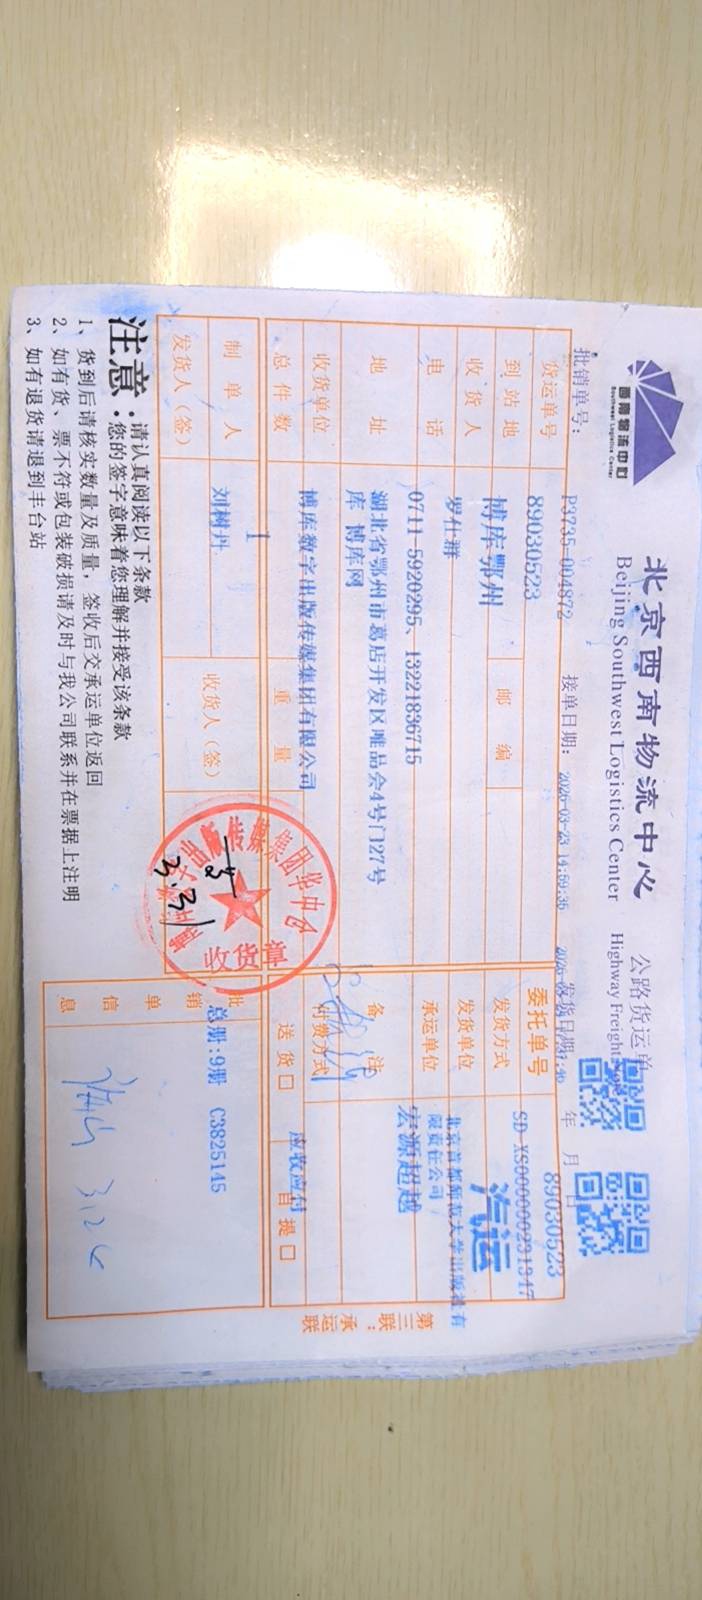 西南物流中心
Southwest Logistics Center
北京西南物流中心
Beijing Southwest Logistics Center
公路货运单
Highway Freight
批销单号: P3735-004872
接单日期: 2026-03-23 14:59:36
发货日期:
年 月 日
货运单号 89030523
委托单号 89030523
SD-XS000000231347
到站地 博库鄂州 邮编
发货方式 汽运
收货人 罗仕群
发货单位 北京首都师范大学出版社有限责任公司
电话 0711-5920295、13221836715
承运单位 宏源超越
地址 湖北省鄂州市葛店开发区唯品会4号门27号库 博库网
备注
收货单位 博库数字出版传媒集团有限公司
付费方式 应收应付
总件数 1 重量
送货□ 自提□
制单人 刘树丹 收货人(签)
发货人(签)
批销单信息
总册:9册 C3825145
收货章
3.31
3.26
第三联:承运联
注意: 请认真阅读以下条款
您的签字意味着您理解并接受该条款
1、货到后请核实数量及质量,签收后交承运单位返回
2、如有货、票不符或包装破损请及时与我公司联系并在票据上注明
3、如有退货请退到丰台站